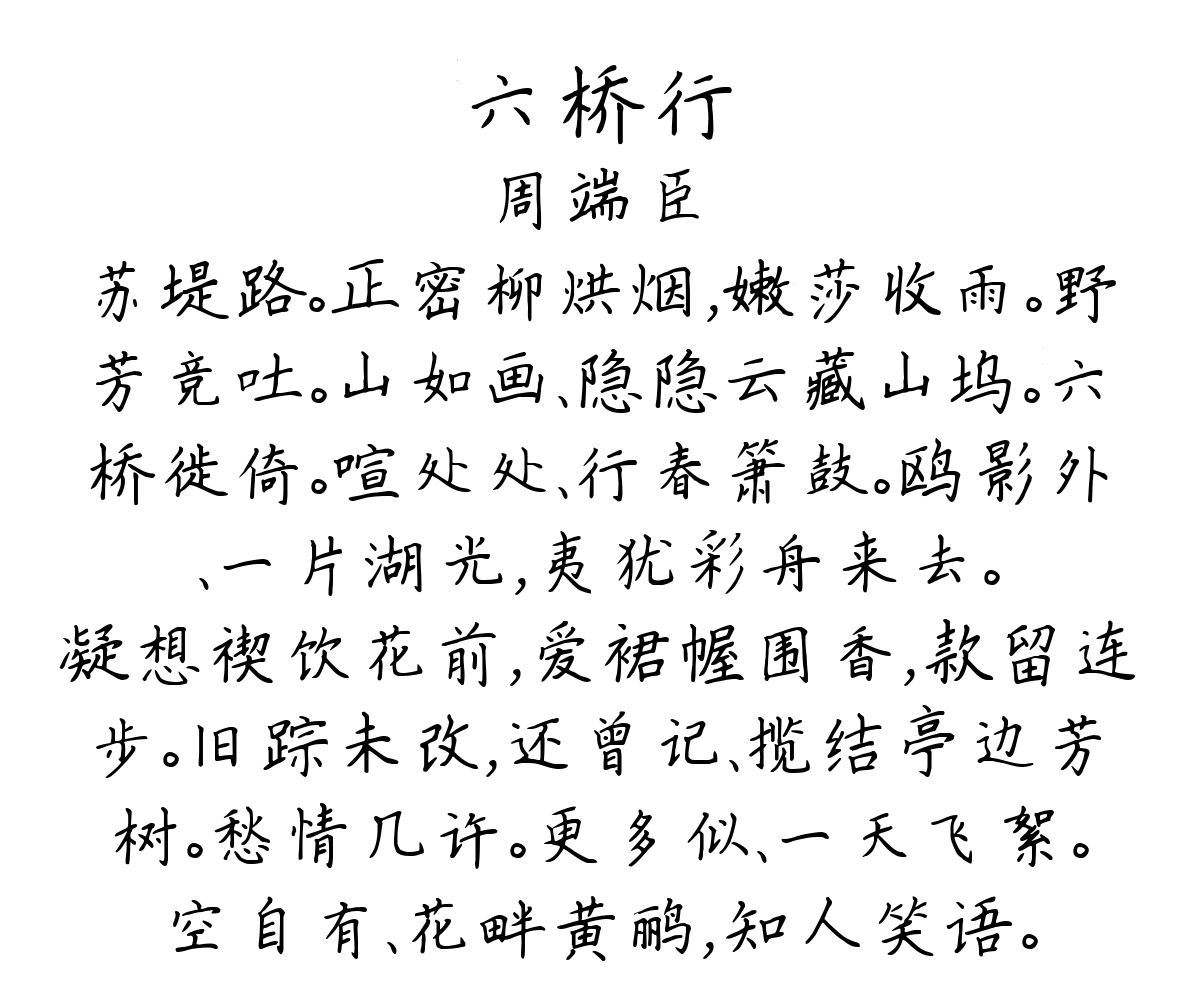 六桥行
周端臣
苏堤路。正密柳烘烟,嫩莎收雨。野
芳竞吐。山如画、隐隐云藏山坞。六
桥徙倚。喧处处、行春箫鼓。鸥影外
、一片湖光,夷犹彩舟来去。
凝想禊饮花前,爱裙幄围香,款留连
步。旧踪未改,还曾记、揽结亭边芳
树。愁情几许。更多似、一天飞絮。
空自有、花畔黄鹂,知人笑语。